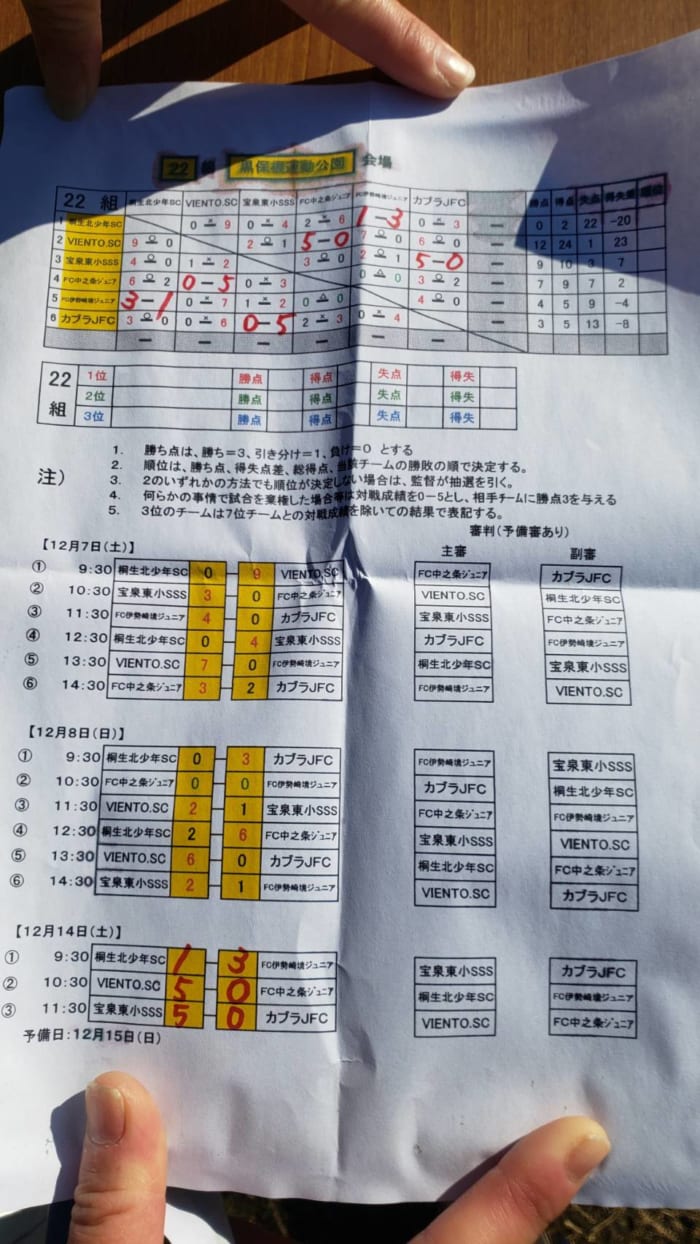 22 組 黒保根運動公園 会場
22 組 桐生北少年SC VIENTO.SC 宝泉東小SSS FC中之条ジュニア FC伊勢崎境ジュニア カブラJFC ー 勝点 得点 失点 得失差 順位
1 桐生北少年SC 0 × 9 0 × 4 2 × 6 1-3 0 × 3 ー 0 2 22 -20
2 VIENTO.SC 9 ○ 0 2 ○ 1 5-0 7 ○ 0 6 ○ 0 ー 12 24 1 23
3 宝泉東小SSS 4 ○ 0 1 × 2 3 ○ 0 2 ○ 1 5-0 ー 9 10 3 7
4 FC中之条ジュニア 6 ○ 2 0-5 0 × 3 0 △ 0 3 ○ 2 ー 7 9 7 2
5 FC伊勢崎境ジュニア 3-1 0 × 7 1 × 2 0 △ 0 4 ○ 0 ー 4 5 9 -4
6 カブラJFC 3 ○ 0 0 × 6 0-5 2 × 3 0 × 4 ー 3 5 13 -8
ー ー ー ー ー ー
22 組
1位 勝点 得点 失点 得失
2位 勝点 得点 失点 得失
3位 勝点 得点 失点 得失
注)
1. 勝ち点は、勝ち=3、引き分け=1、負け=0 とする
2. 順位は、勝ち点、得失点差、総得点、当該チームの勝敗の順で決定する。
3. 2のいずれかの方法でも順位が決定しない場合は、監督が抽選を引く。
4. 何らかの事情で試合を棄権した場合等は対戦成績を0-5とし、相手チームに勝点3を与える
5. 3位のチームは7位チームとの対戦成績を除いての結果で表記する。
審判(予備審あり)
【12月7日(土)】 主審 副審
① 9:30 桐生北少年SC 0 ー 9 VIENTO.SC FC中之条ジュニア カブラJFC
② 10:30 宝泉東小SSS 3 ー 0 FC中之条ジュニア VIENTO.SC 桐生北少年SC
③ 11:30 FC伊勢崎境ジュニア 4 ー 0 カブラJFC 宝泉東小SSS FC中之条ジュニア
④ 12:30 桐生北少年SC 0 ー 4 宝泉東小SSS カブラJFC FC伊勢崎境ジュニア
⑤ 13:30 VIENTO.SC 7 ー 0 FC伊勢崎境ジュニア 桐生北少年SC 宝泉東小SSS
⑥ 14:30 FC中之条ジュニア 3 ー 2 カブラJFC FC伊勢崎境ジュニア VIENTO.SC
【12月8日(日)】
① 9:30 桐生北少年SC 0 ー 3 カブラJFC FC伊勢崎境ジュニア 宝泉東小SSS
② 10:30 FC中之条ジュニア 0 ー 0 FC伊勢崎境ジュニア カブラJFC 桐生北少年SC
③ 11:30 VIENTO.SC 2 ー 1 宝泉東小SSS FC中之条ジュニア FC伊勢崎境ジュニア
④ 12:30 桐生北少年SC 2 ー 6 FC中之条ジュニア 宝泉東小SSS VIENTO.SC
⑤ 13:30 VIENTO.SC 6 ー 0 カブラJFC 桐生北少年SC FC中之条ジュニア
⑥ 14:30 宝泉東小SSS 2 ー 1 FC伊勢崎境ジュニア VIENTO.SC カブラJFC
【12月14日(土)】
① 9:30 桐生北少年SC 1 ー 3 FC伊勢崎境ジュニア 宝泉東小SSS カブラJFC
② 10:30 VIENTO.SC 5 ー 0 FC中之条ジュニア 桐生北少年SC FC伊勢崎境ジュニア
③ 11:30 宝泉東小SSS 5 ー 0 カブラJFC VIENTO.SC FC中之条ジュニア
予備日:12月15日(日)